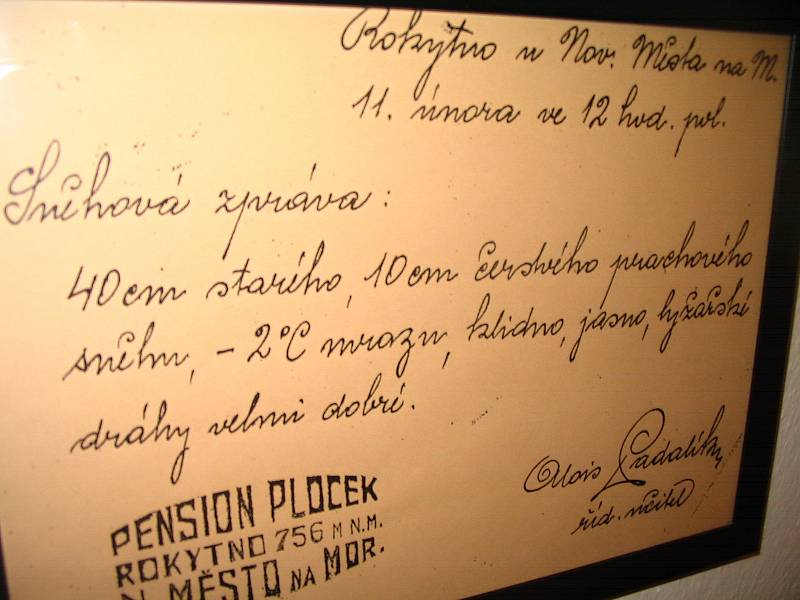 Rokytno u Nov. Města na M.
11. února ve 12 hod. pol.
Sněhová zpráva:
40 cm starého, 10 cm čerstvého prachového
sněhu, - 2°C mrazu, klidno, jasno, lyžařské
dráhy velmi dobré.
Alois Padalíky
říd. učitel
PENSION PLOCEK
ROKYTNO 756 M N.M.
N. MĚSTO NA MOR.